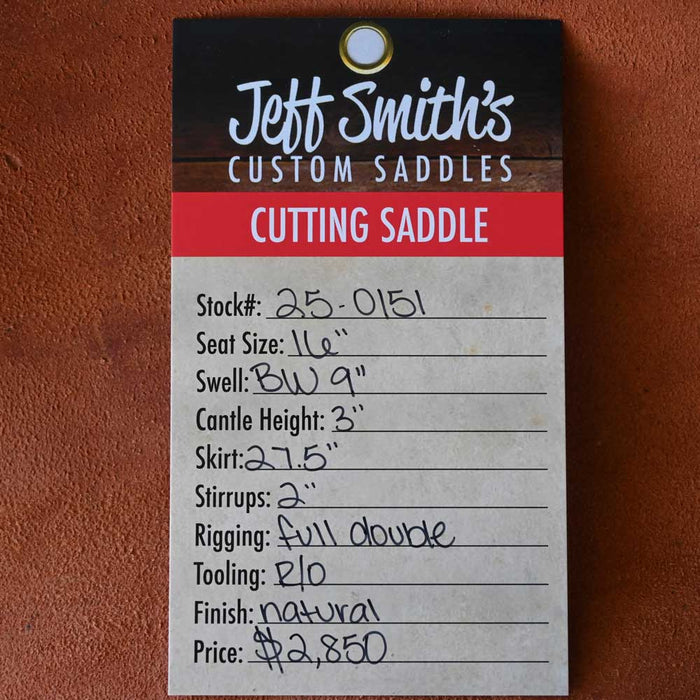 Jeff Smith's
CUSTOM SADDLES
CUTTING SADDLE
Stock#: 25-0151
Seat Size: 16"
Swell: BW 9"
Cantle Height: 3"
Skirt: 27.5"
Stirrups: 2"
Rigging: full double
Tooling: R/O
Finish: natural
Price: $2,850